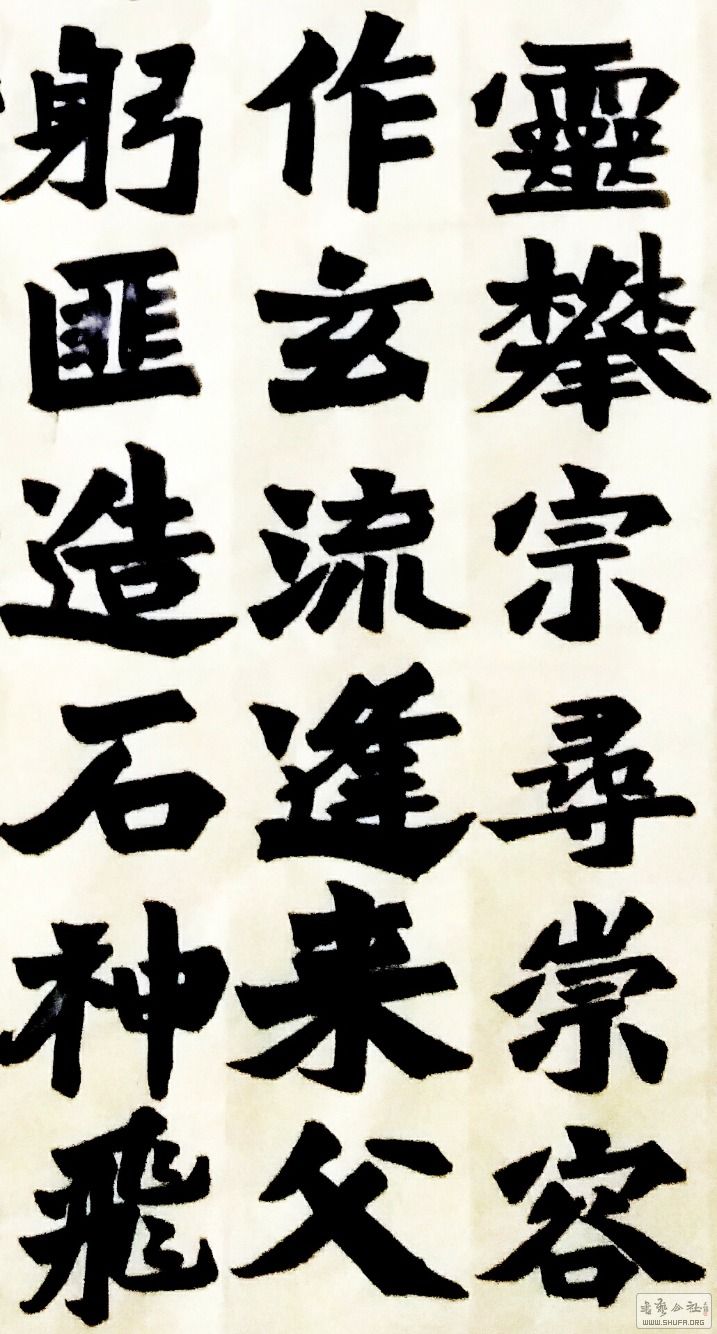 靈攀宗尋崇容
作玄流逢来父
躬匪造石神飛
書藝公社
WWW.SHUFA.ORG